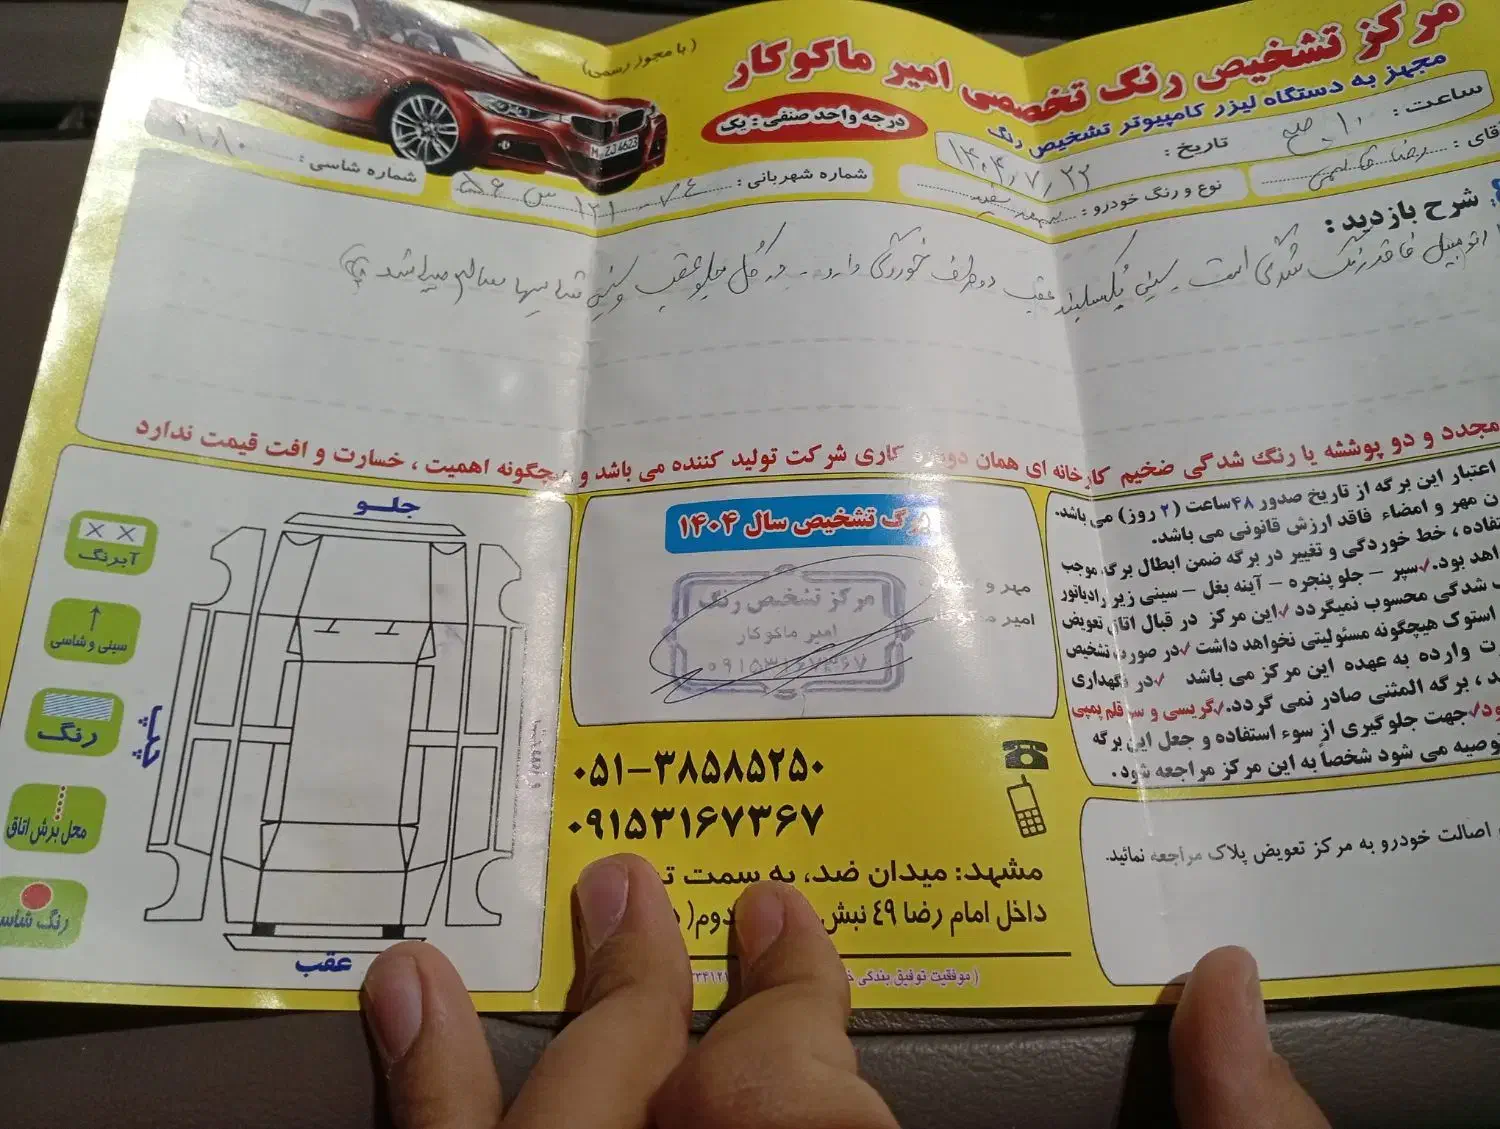 مرکز تشخیص رنگ تخصصی امیر ماکوکار
(با مجوز رسمی)
مجهز به دستگاه لیزر کامپیوتر تشخیص رنگ
درجه واحد صنفی : یک
ساعت : ۱۰ صبح
تاریخ : ۱۴۰۴٫۷٫۲۲
قای : رضا
نوع و رنگ خودرو : سمند سفید
شماره شهربانی :
شماره شاسی :
شرح بازدید :
اتومبیل فاقد رنگ شدگی است سینی بکسلبند عقب دو طرف خوردگی دارد - هر گل جلو عقب و سینی شاسیها سالم میباشد
مجدد و دو پوششه یا رنگ شدگی ضخیم کارخانه ای همان دوباره کاری شرکت تولید کننده می باشد و هیچگونه اهمیت ، خسارت و افت قیمت ندارد
اعتبار این برگه از تاریخ صدور ۴۸ ساعت (۲ روز) می باشد.
ن مهر و امضاء فاقد ارزش قانونی می باشد.
تفاده ، خط خوردگی و تغییر در برگه ضمن ابطال برگه موجب
اهد بود.✓سپر – جلو پنجره – آینه بغل – سینی زیر رادیاتور
شدگی محسوب نمیگردد ✓این مرکز در قبال اتاق تعویض
استوک هیچگونه مسئولیتی نخواهد داشت ✓در صورت تشخیص
رت وارده به عهده این مرکز می باشد ✓در نگهداری
د ، برگه المثنی صادر نمی گردد.✓گریسی و سر قلم پمپی
ود✓جهت جلوگیری از سوء استفاده و جعل این برگه
توصیه می شود شخصاً به این مرکز مراجعه شود .
اصالت خودرو به مرکز تعویض پلاک مراجعه نمائید.
برگ تشخیص سال ۱۴۰۴
مهر و
امیر ماکوکار
مرکز تشخیص رنگ
امیر ماکوکار
۰۹۱۵۳۱۶۷۳۶۷
۰۵۱–۳۸۵۸۵۲۵۰
۰۹۱۵۳۱۶۷۳۶۷
مشهد: میدان ضد، به سمت
داخل امام رضا ۴۹ نبش
دوم(
(موفقیت توفیق بندگی
جلو
آبرنگ
سینی و شاسی
رنگ
محل برش اتاق
رنگ شاس
چپ
عقب